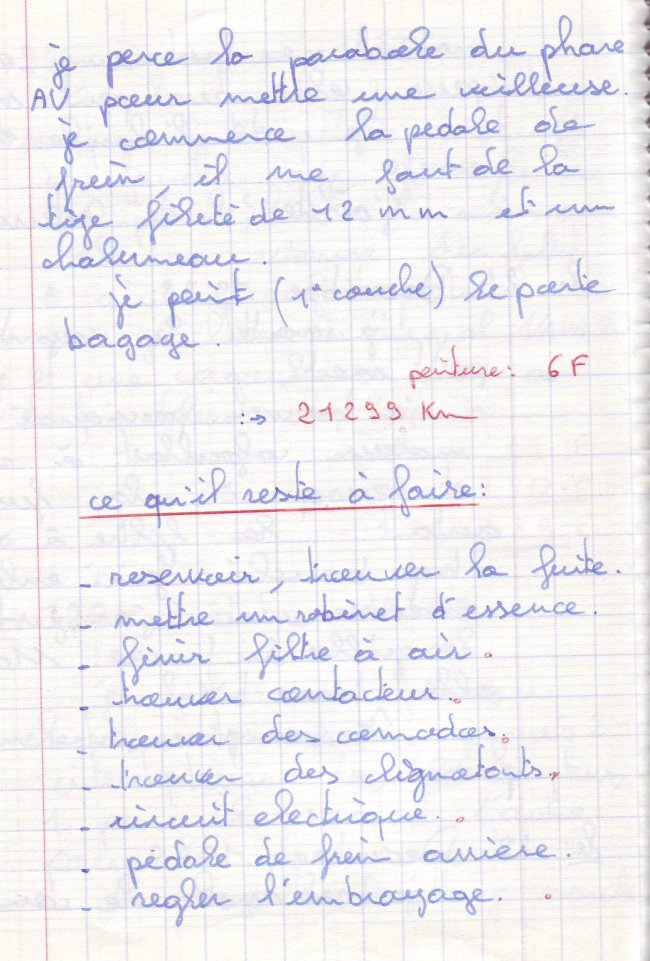 je perce la parabole du phare
AV pour mettre une veilleuse.
je commence la pedale de
frein, il me faut de la
tige fileté de 12 mm et un
chalumeau.
je peint (1° couche) le porte
bagage.
peinture: 6 F
:→ 21299 Km
ce qu'il reste à faire:
- reservoir, trouver la fuite.
- mettre un robinet d'essence.
- finir filtre à air.
- trouver contacteur.
- trouver des comodos.
- trouver des clignotants.
- circuit electrique.
- pédale de frein arriere.
- regler l'embrayage.